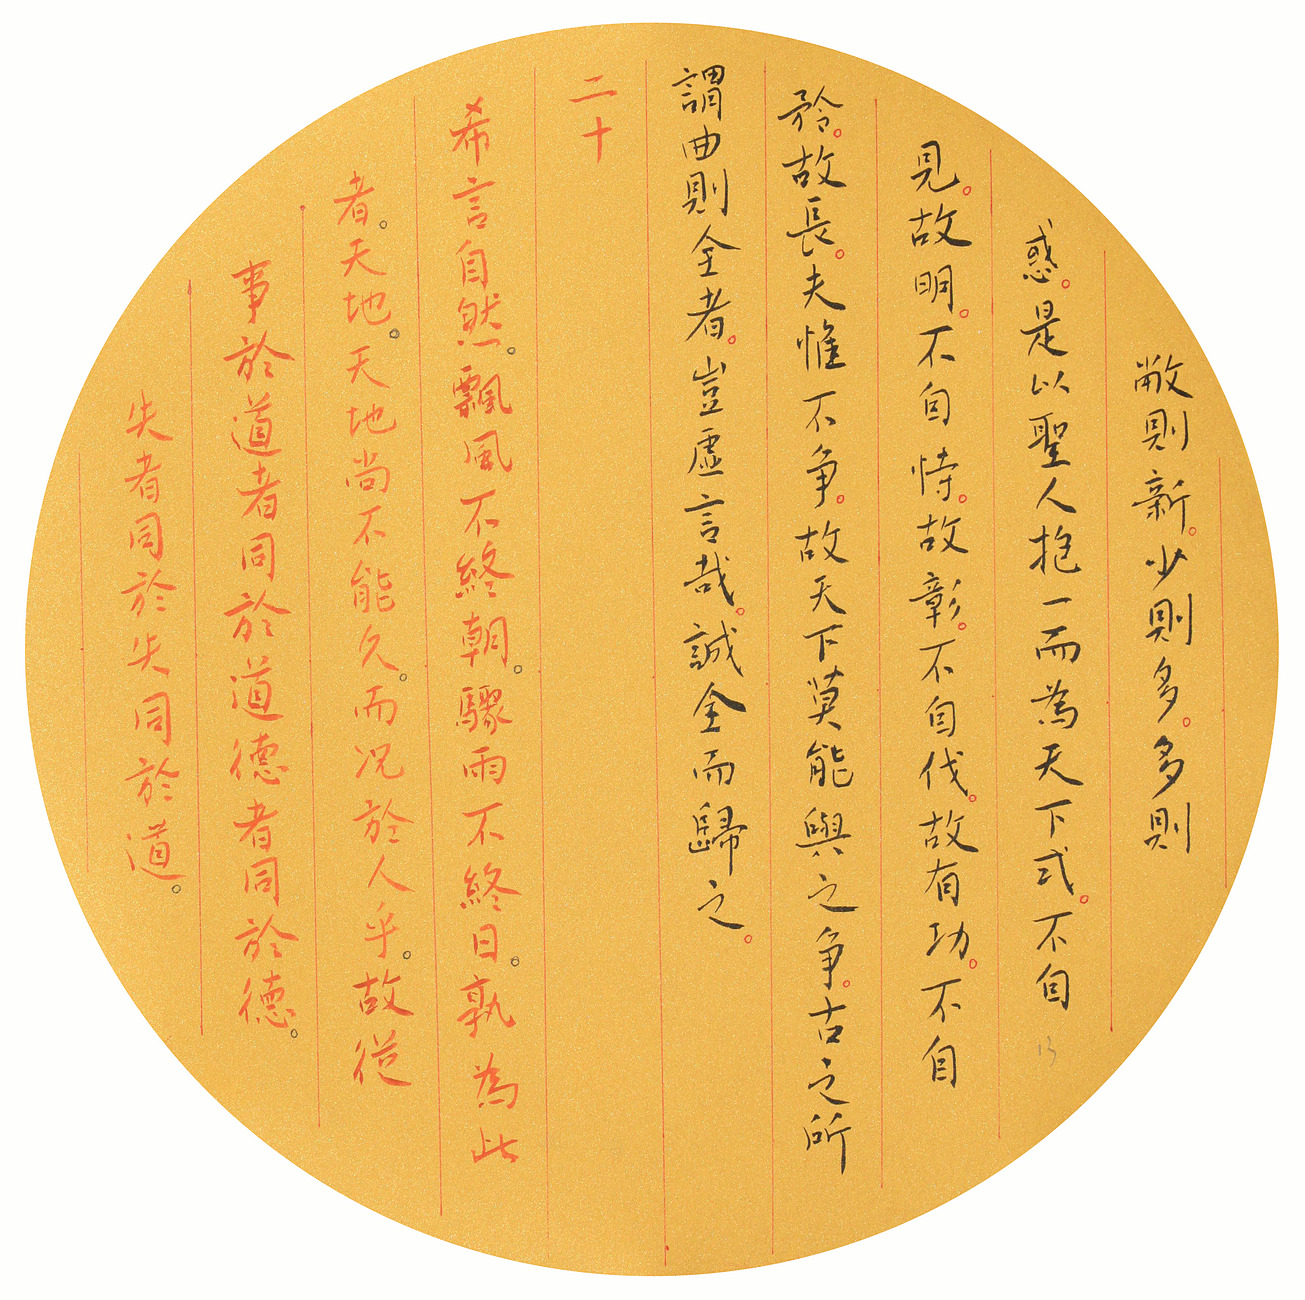 敝則新。少則多。多則
惑。是以聖人抱一而為天下式。不自
見。故明。不自恃。故彰。不自伐。故有功。不自
矜。故長。夫惟不争。故天下莫能與之争。古之所
謂曲則全者。豈虛言哉。誠全而歸之。
二十
希言自然。飄風不終朝。驟雨不終日。孰為此
者。天地。天地尚不能久。而况於人乎。故從
事於道者同於道德者同於德。
失者同於失同於道。
13